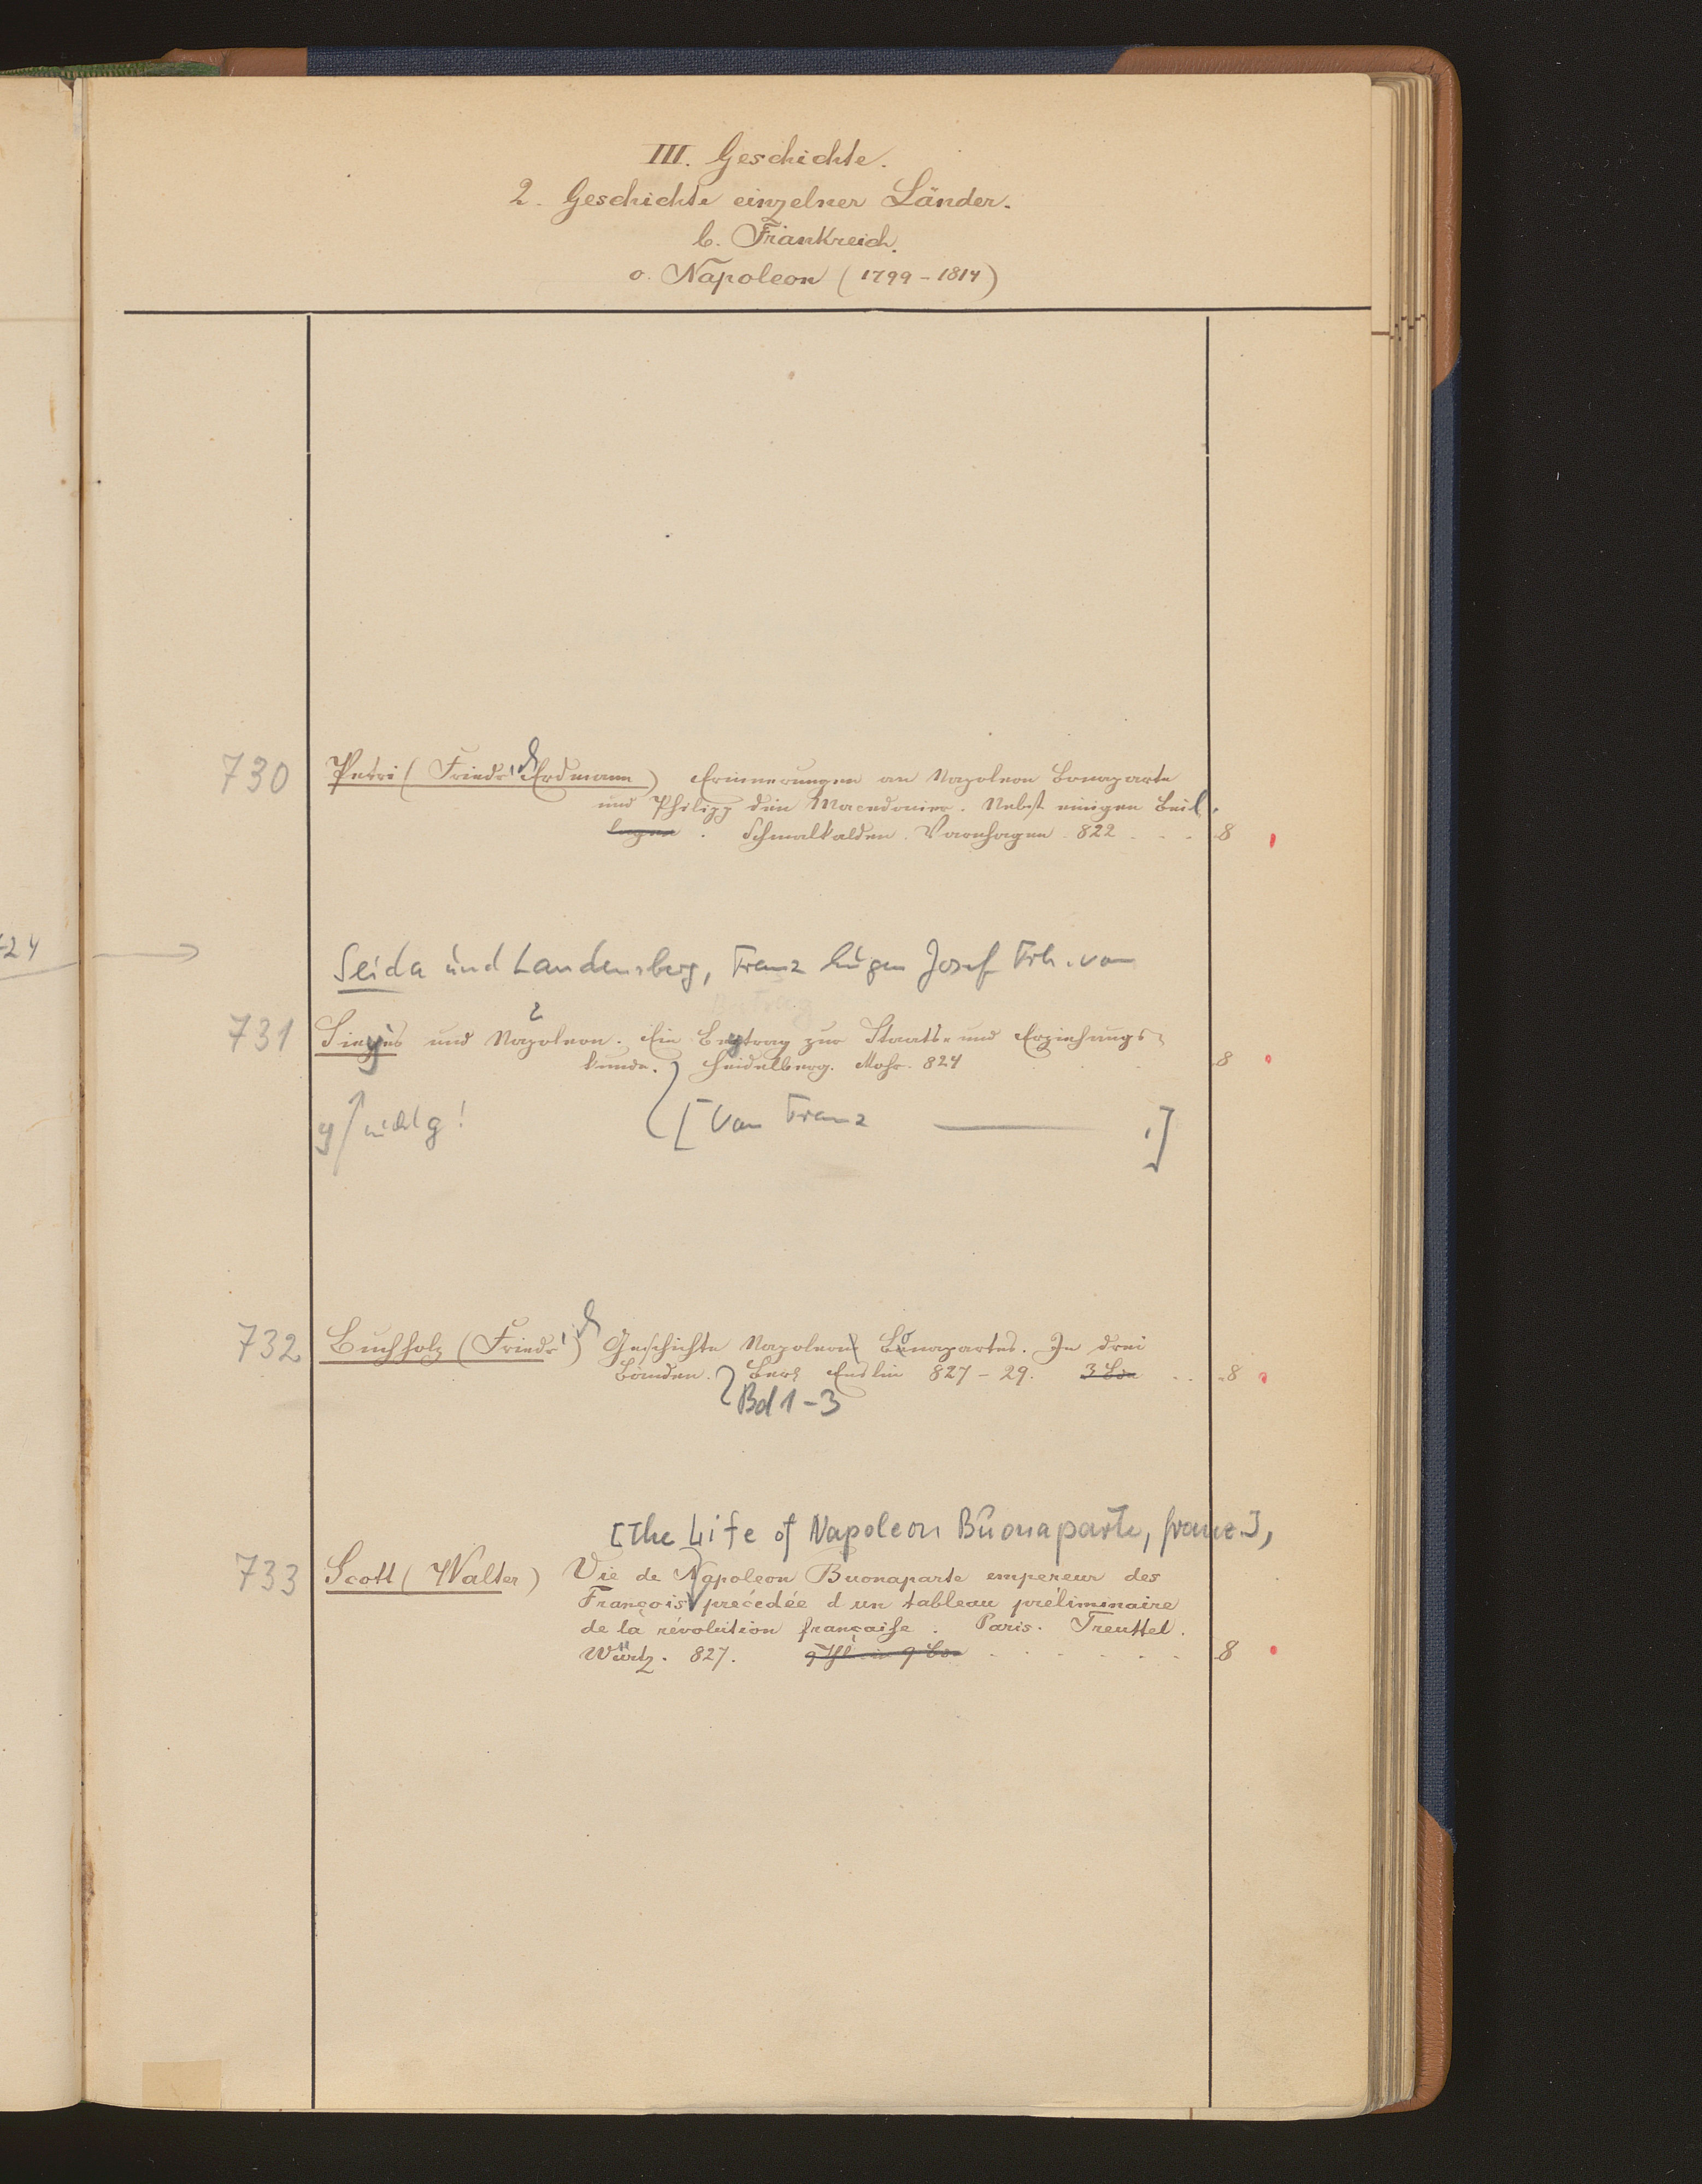 III. Geschichte.
2. Geschichte einzelner Länder.
b. Frankreich.
o. Napoleon (1799-1814)
730 Petri (Friedr. Erdmann) Erinnerungen an Napoleon Bonaparte
und Philipp den Macedonier. Nebst einigen Beil.
lagen. Schmalkalden. Varnhagen. 822 . . . 8
24
Seida und Landensberg, Franz Eugen Josef Frh. von
Beytrag
731 Sieyès und Napoleon. Ein Beytrag zur Staats- und Erziehungs-
kunde. Heidelberg. Mohr. 824 8
y nicht g! [Von Franz ——— .]
732 Buchholz (Friedr.) Geschichte Napoleon Bonapartes. In drei
Bänden. Berl. Enslin 827-29. 3 Bde . . 8
Bd 1-3
[The Life of Napoleon Buonaparte, franz.],
733 Scott (Walter) Vie de Napoleon Buonaparte empereur des
François précédée d un tableau préliminaire
de la révolution française. Paris. Treuttel.
Würtz. 827. 9 Thle in 9 Bde . . . . . . 8